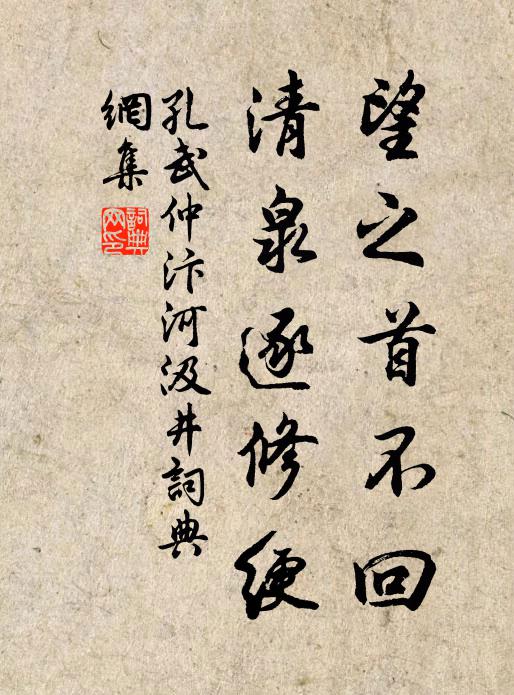 望之首不回
清泉逐修绠
孔武仲汴河汲井詞典
網集
詞典
网印